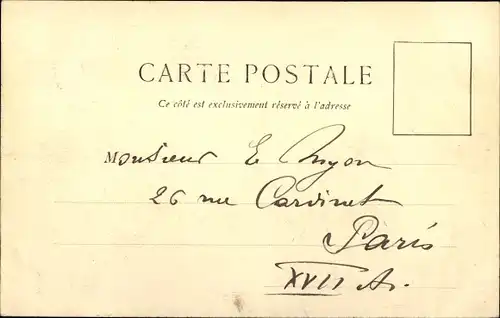 CARTE POSTALE
Ce côté est exclusivement réservé à l'adresse
Monsieur E
26 rue Cardinet
Paris
XVII Ar.